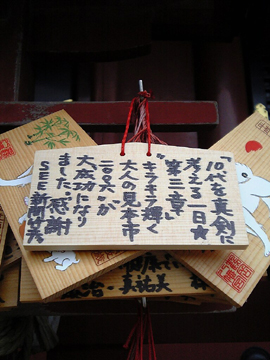 「10代を真剣に
考える一日☆
"第三章"
キラキラ輝く
大人の見本市
二〇〇六」が
大成功になり
ました。感謝